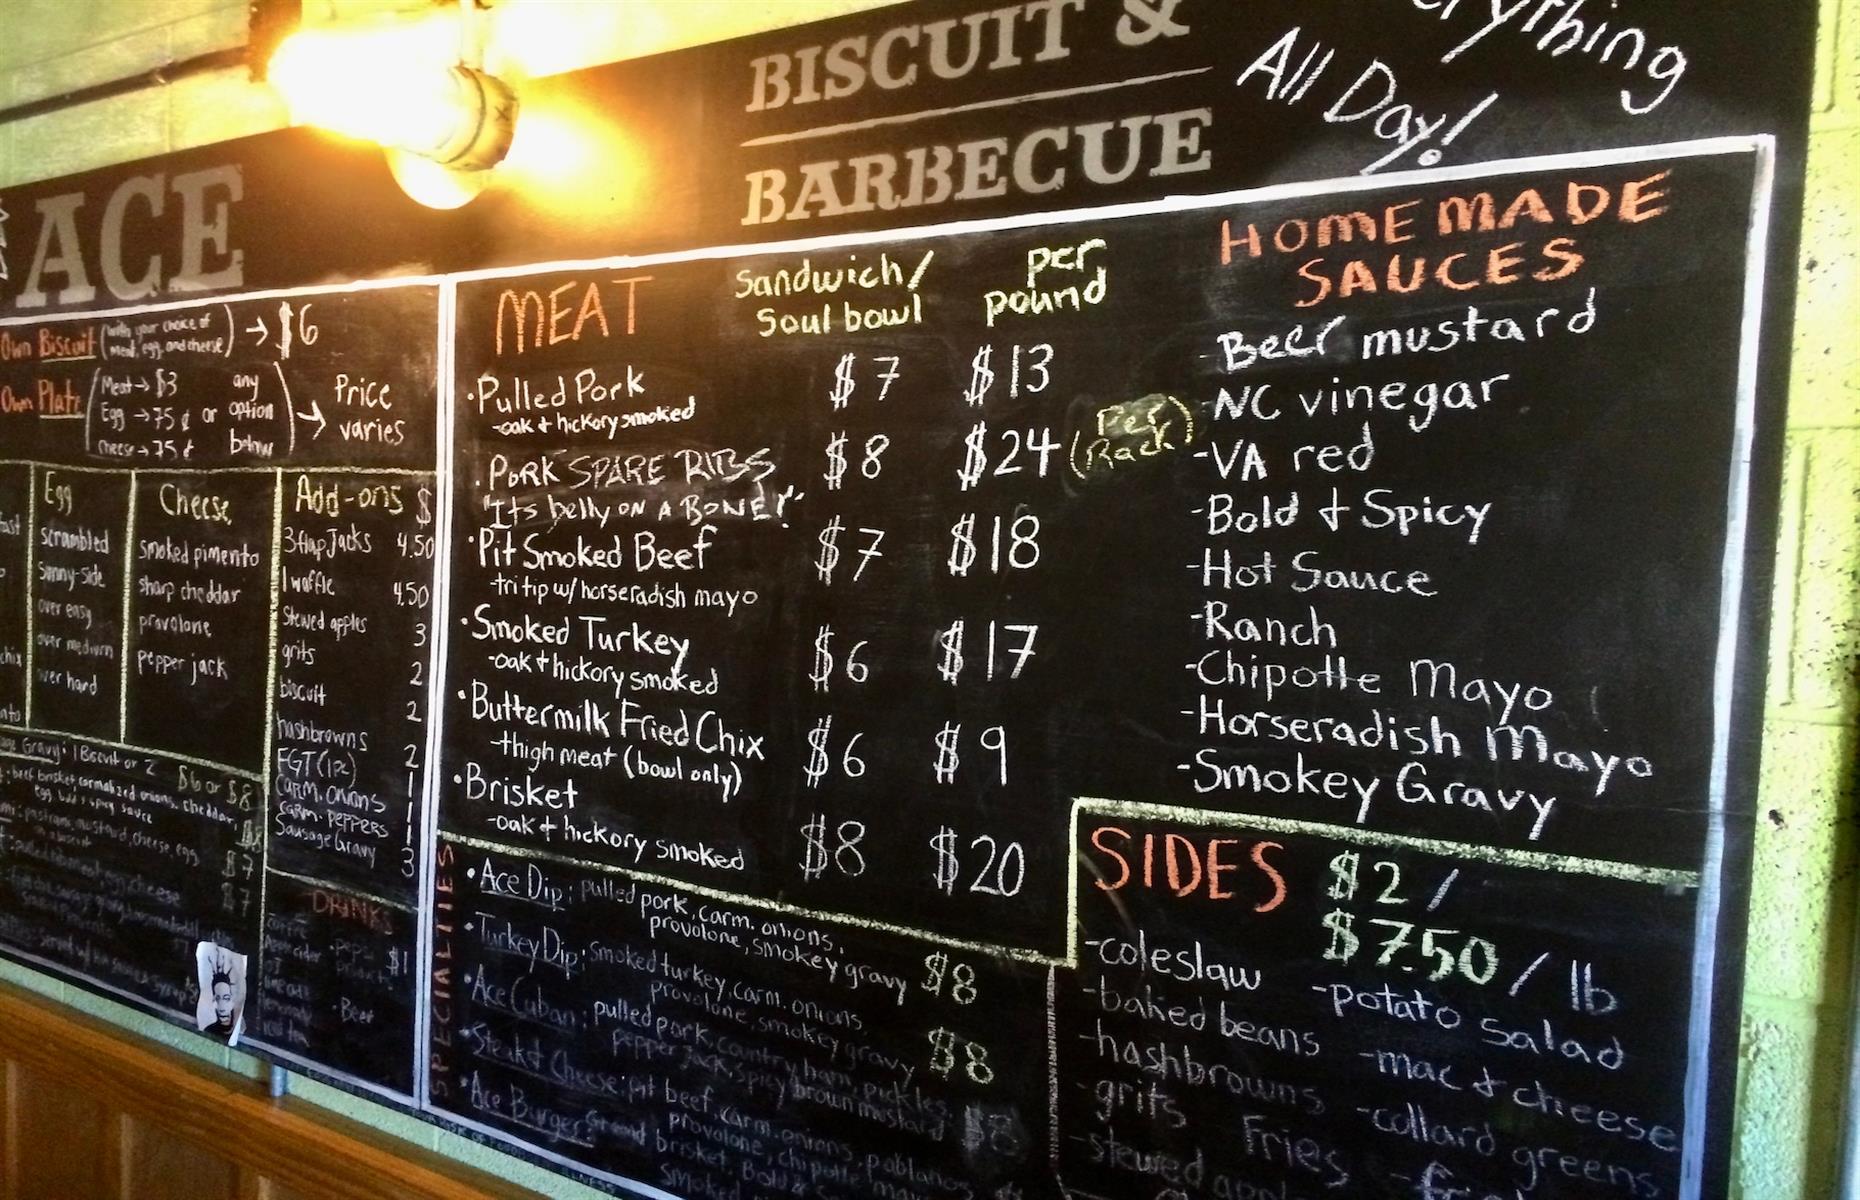 ACE
BISCUIT &
BARBECUE
All Day!
Own Biscuit (with your choice of
meat, egg, and cheese) → $6
Own Plate
Meat → $3
Egg → 75¢ or
Cheese → 75¢
any
option
below
→ Price
varies
Egg
scrambled
Sunny-side
over easy
over medium
over hard
Cheese
smoked pimento
sharp cheddar
provolone
pepper jack
Add-ons $
3 flap Jacks 4.50
1 waffle 4.50
Stewed apples 3
grits 2
biscuit 2
hashbrowns 2
FGT (1pc) 1
carm. onions 1
carm. peppers 1
Sausage Gravy 3
Gravy: 1 Biscuit or 2 $6 or $8
beef brisket, carmalized onions, cheddar,
$8
cheese, egg
$7
$7
DRINKS
coffee
$1
- Beer
MEAT
Sandwich/
Soul bowl
per
pound
• Pulled Pork $7 $13
-oak + hickory smoked
. PORK SPARE RIBS $8 $24 (Per Rack)
"Its belly ON A BONE!"
• Pit Smoked Beef $7 $18
-tri tip w/ horseradish mayo
• Smoked Turkey $6 $17
-oak + hickory smoked
• Buttermilk Fried Chix $6 $9
-thigh meat (bowl only)
• Brisket $8 $20
-oak + hickory smoked
HOMEMADE
SAUCES
-Beer mustard
-NC vinegar
-VA red
-Bold + Spicy
-Hot Sauce
-Ranch
-Chipotle Mayo
-Horseradish Mayo
-Smokey Gravy
SPECIALTIES
• Ace Dip: pulled pork, carm. onions,
provolone, smokey gravy $8
• Turkey Dip: smoked turkey, carm. onions
provolone, smokey gravy $8
• Ace Cuban: pulled pork, country ham, pickles,
pepper jack, spicy brown mustard $8
• Steak & Cheese: pit beef, carm. onions, poblanos
provolone, chipotle mayo
• Ace Burger: Ground brisket, Bold &
smoked
SIDES $2 /
$7.50 / lb
-coleslaw
-baked beans
-hashbrowns
-grits
-stewed
Fries
-potato salad
-mac & cheese
-collard greens